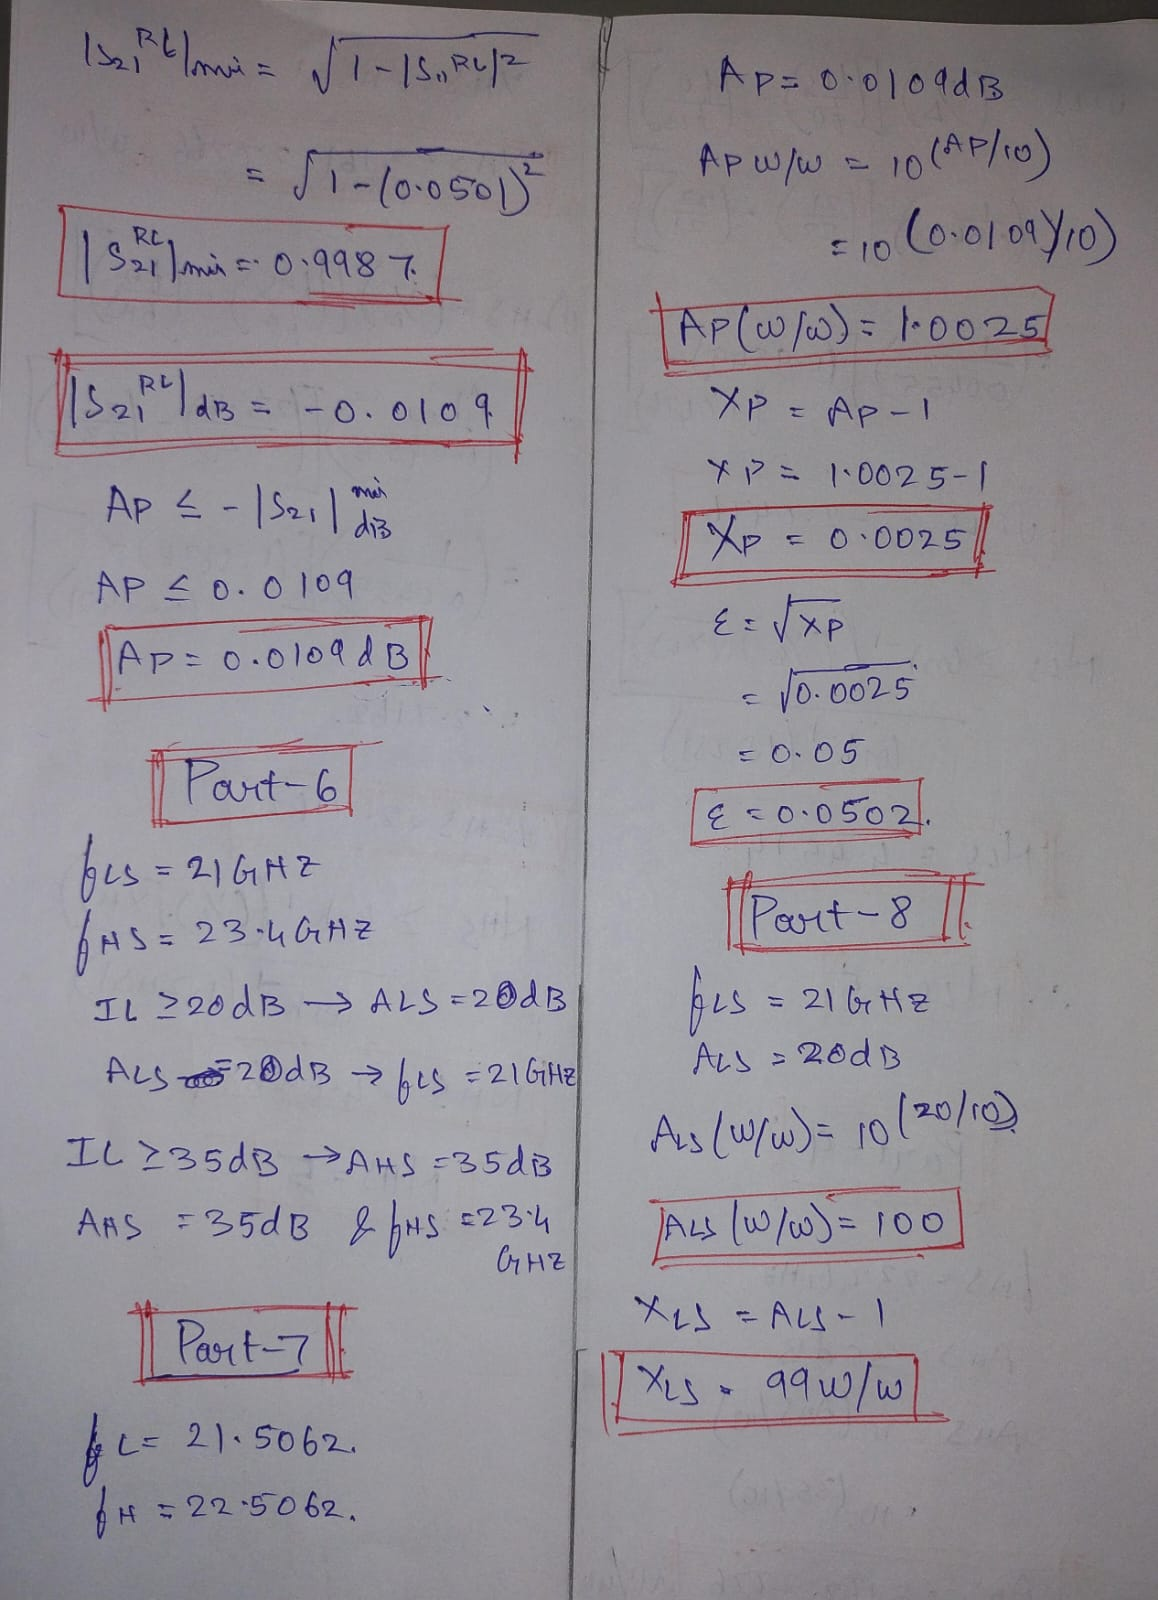 |S21^RL|min = √1-|S11^RL|²
= √1-(0.0501)²
|S21^RL|min = 0.9987.
|S21^RL|dB = -0.0109
AP ≤ -|S21|^min dB
AP ≤ 0.0109
AP = 0.0109dB
Part-6
fLS = 21GHZ
fHS = 23.4GHZ
IL ≥20dB → ALS =20dB
ALS =20dB → fLS =21GHZ
IL ≥35dB → AHS =35dB
AHS =35dB & fHS =23.4
GHZ
Part-7
fL= 21.5062.
fH = 22.5062.
AP= 0.0109dB
AP W/W = 10(AP/10)
=10(0.0109)/10)
AP(W/W)= 1.0025
XP = AP-1
XP = 1.0025-1
XP = 0.0025
ε= √XP
= √0.0025
=0.05
ε =0.0502.
Part-8
fLS = 21GHZ
ALS = 20dB
ALS (W/W)= 10(20/10)
ALS (W/W)= 100
XLS = ALS-1
XLS = 99W/W